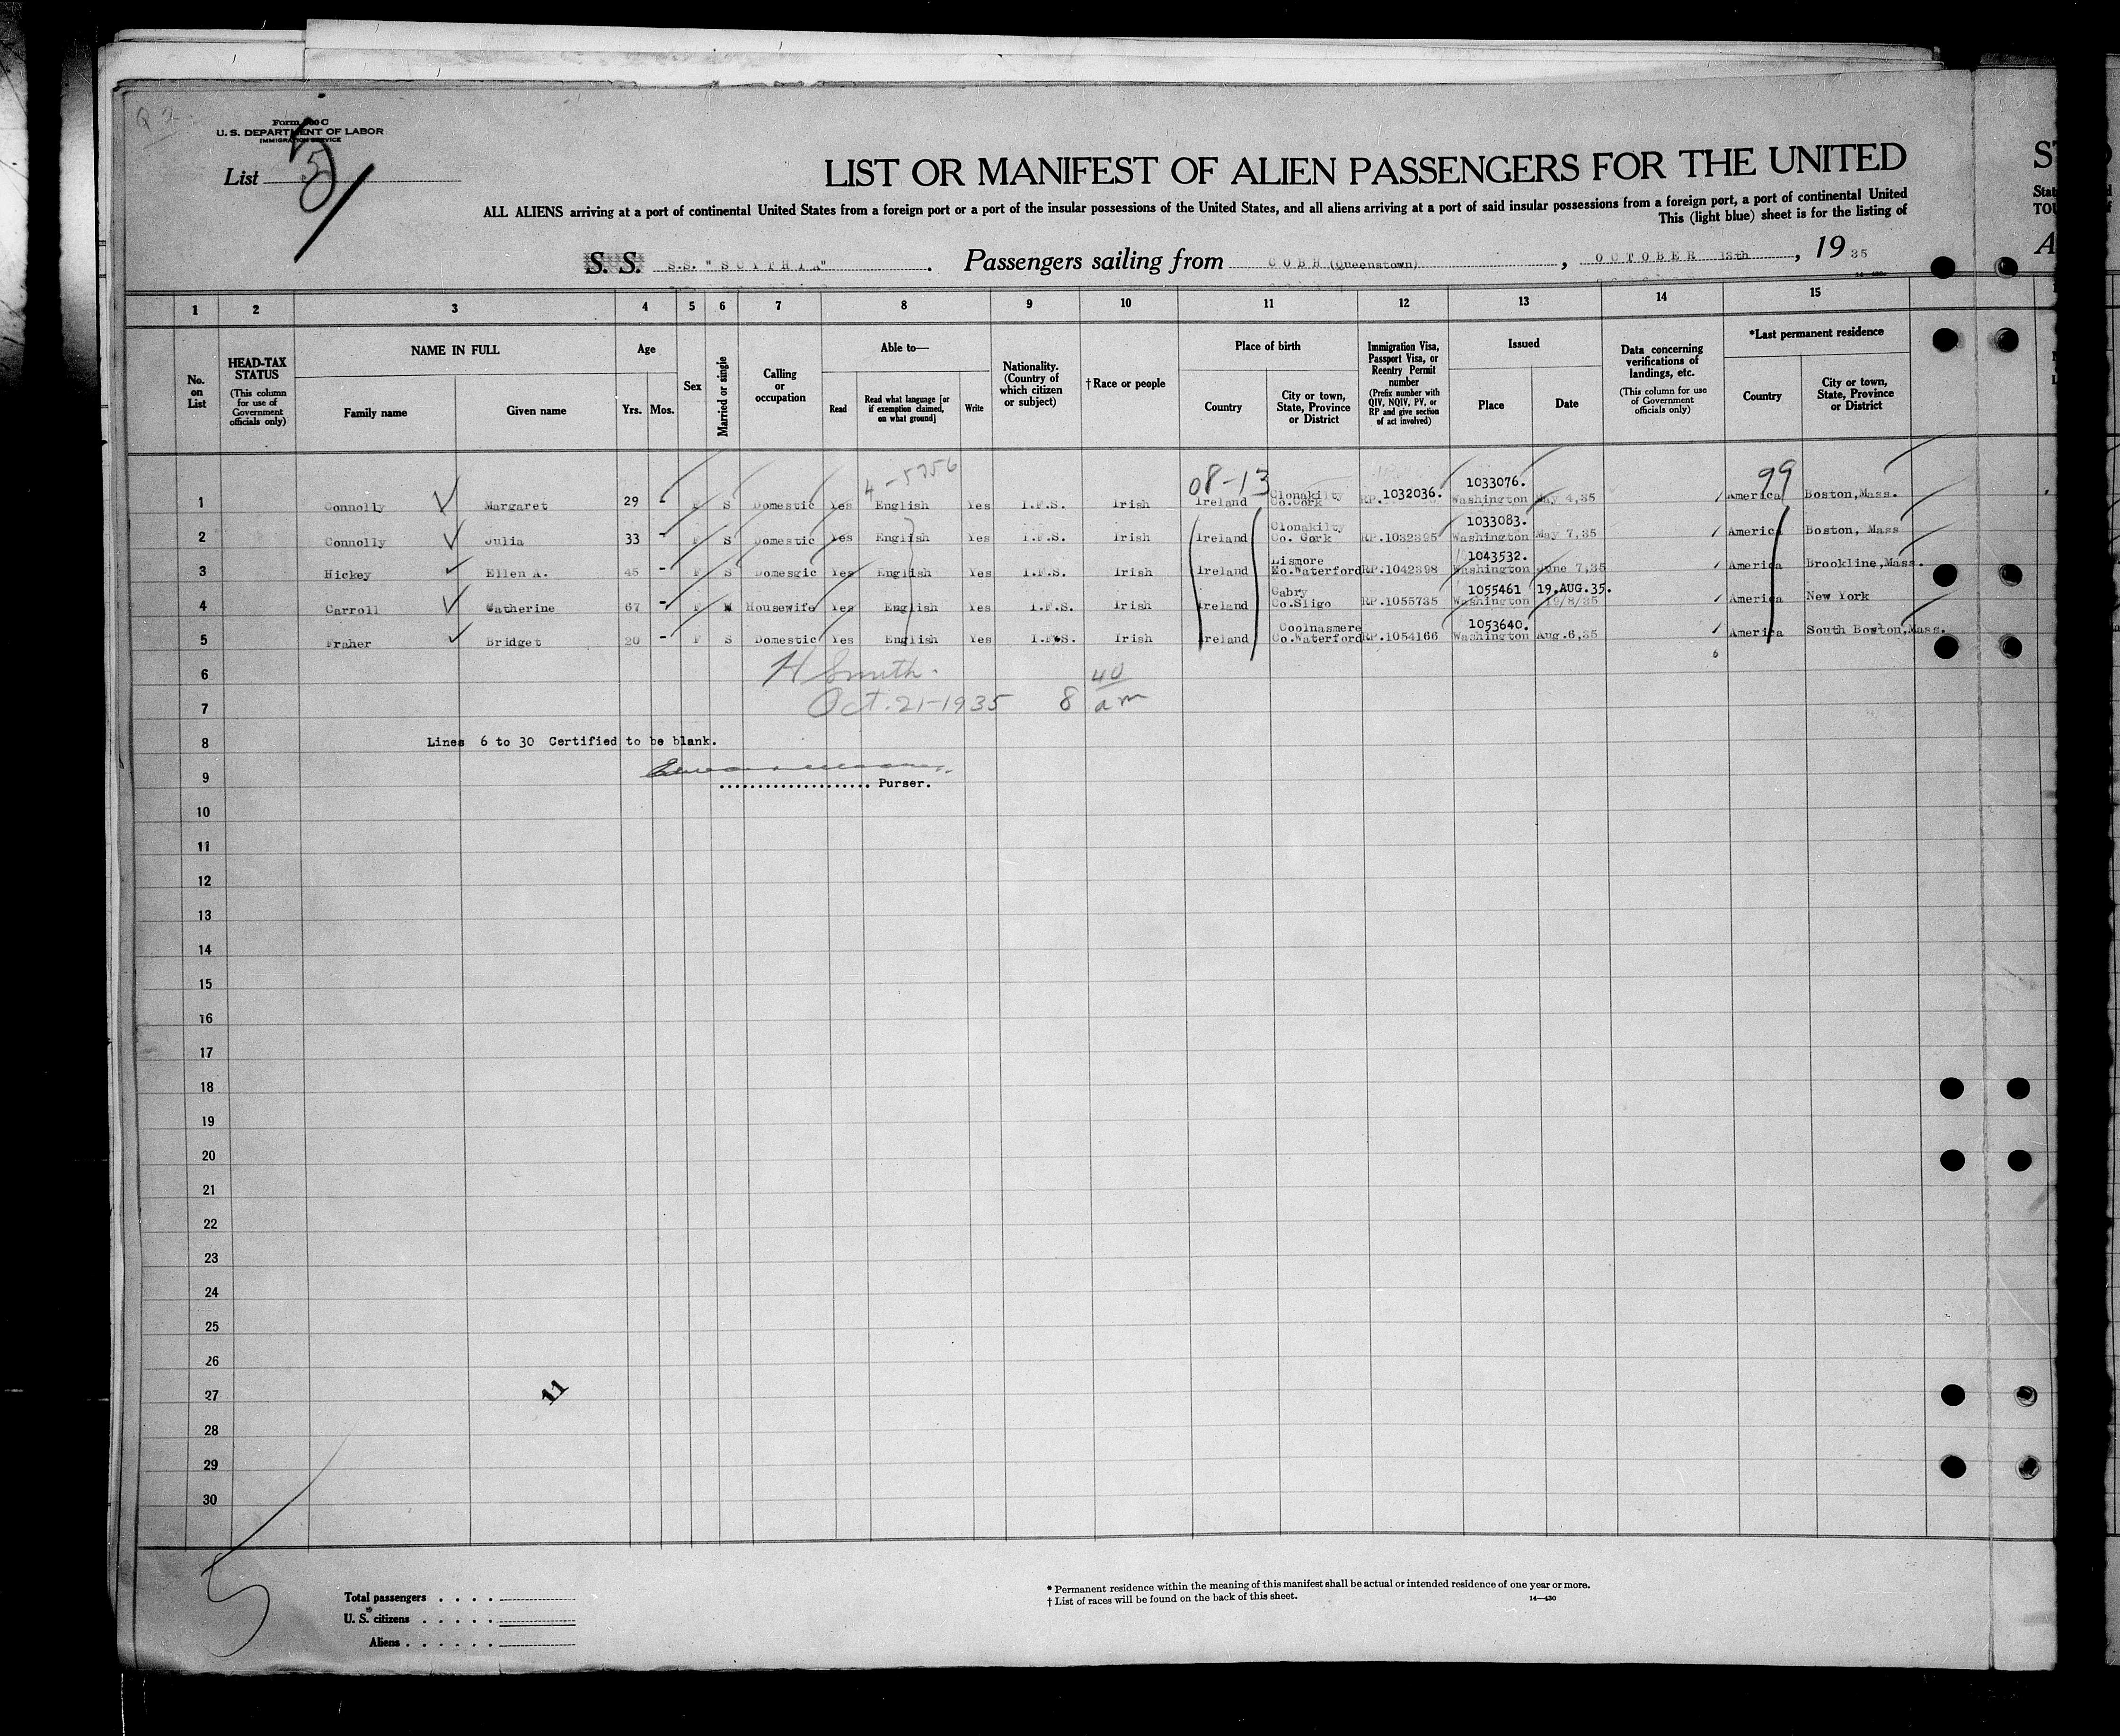 Form 500 C
U. S. DEPARTMENT OF LABOR
IMMIGRATION SERVICE
List 5
LIST OR MANIFEST OF ALIEN PASSENGERS FOR THE UNITED
ALL ALIENS arriving at a port of continental United States from a foreign port or a port of the insular possessions of the United States, and all aliens arriving at a port of said insular possessions from a foreign port, a port of continental United
This (light blue) sheet is for the listing of
S. S. S.S. "SCYTHIA". Passengers sailing from COBH (Queenstown), OCTOBER 13th, 1935
1 2 3 4 5 6 7 8 9 10 11 12 13 14 15
No. on List
HEAD-TAX STATUS
(This column for use of Government officials only)
NAME IN FULL
Family name
Given name
Age
Yrs. Mos.
Sex
Married or single
Calling or occupation
Able to—
Read
Read what language [or if exemption claimed, on what ground]
Write
Nationality. (Country of which citizen or subject)
† Race or people
Place of birth
Country
City or town, State, Province or District
Immigration Visa, Passport Visa, or Reentry Permit number
(Prefix number with QIV, NQIV, PV, or RP and give section of act involved)
Issued
Place
Date
Data concerning verifications of landings, etc.
(This column for use of Government officials only)
*Last permanent residence
Country
City or town, State, Province or District
4-5756
08-13
99
1 Connolly Margaret 29 - F S Domestic Yes English Yes I.F.S. Irish Ireland Clonakilty Co.Cork RP.1032036. 1033076. Washington May 4,35 America Boston,Mass.
2 Connolly Julia 33 - F S Domestic Yes English Yes I.F.S. Irish Ireland Clonakilty Co. Cork RP.1032395 1033083. Washington May 7,35 America Boston, Mass
3 Hickey Ellen A. 45 - F S Domesgic Yes English Yes I.F.S. Irish Ireland Lismore Co.Waterford RP.1042398 1043532. Washington June 7,35 America Brookline,Mass.
4 Carroll Catherine 67 - F M Housewife Yes English Yes I.F.S. Irish Ireland Gabry Co.Sligo RP.1055735 1055461 Washington 19.AUG.35. 19/8/35 America New York
5 Fraher Bridget 20 - F S Domestic Yes English Yes I.F.S. Irish Ireland Coolnasmere Co.Waterford RP.1054166 1053640. Washington Aug.6,35 America South Boston,Mass.
6
H Smith.
7
Oct. 21-1935 8 40 am
8
Lines 6 to 30 Certified to be blank.
9
.................... Purser.
10
11
12
13
14
15
16
17
18
19
20
21
22
23
24
25
26
27
11
28
29
30
5
Total passengers . . . .
U. S. citizens . . . . .
Aliens . . . . . .
* Permanent residence within the meaning of this manifest shall be actual or intended residence of one year or more.
† List of races will be found on the back of this sheet.
14—430